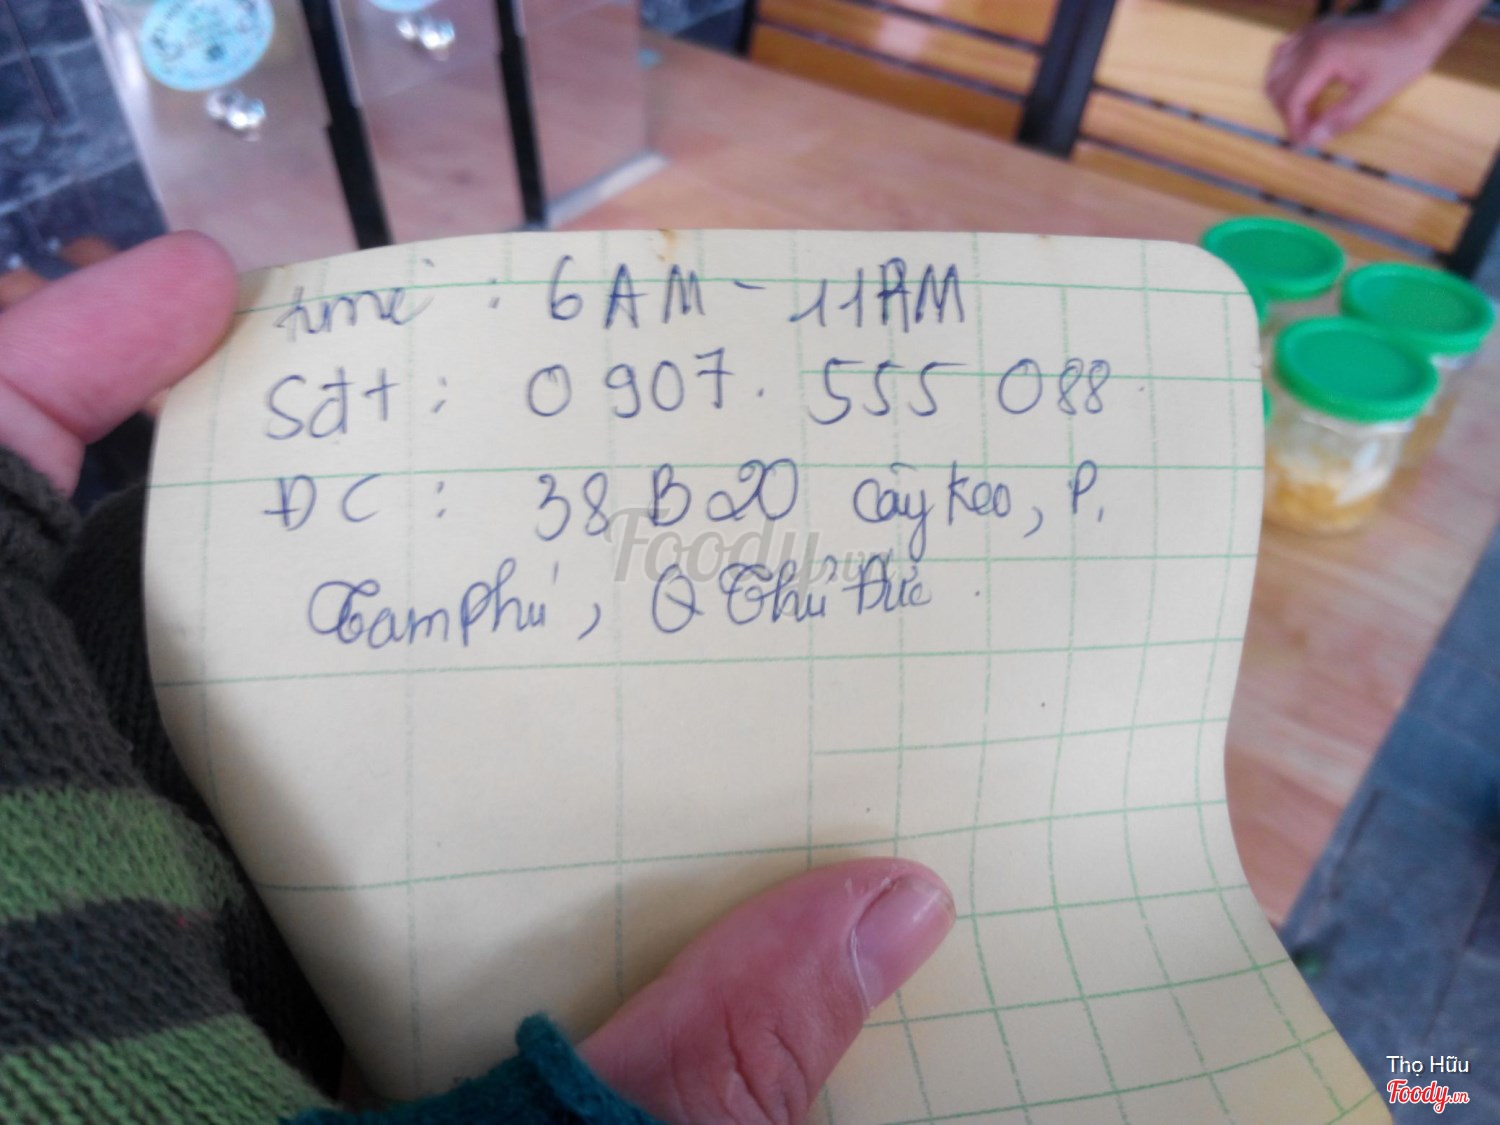 time : 6 AM - 11 AM
Sđt : 0907. 555 088
ĐC : 38 B 20 Cây Keo, P.
Tam Phú, Q Thủ Đức.
Foody.vn
Thọ Hữu
Foody.vn